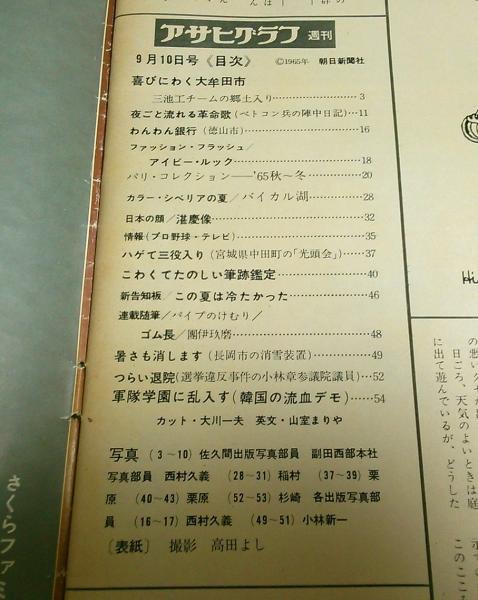 アサヒグラフ 週刊
9月10日号《目次》 ©1965年 朝日新聞社
喜びにわく大牟田市
三池工チームの郷土入り……3
夜ごと流れる革命歌(ベトコン兵の陣中日記)…11
わんわん銀行(徳山市)……16
ファッション・フラッシュ/
アイビー・ルック……18
パリ・コレクション——'65秋〜冬……20
カラー・シベリアの夏/バイカル湖……28
日本の顔/湛慶像……32
情報(プロ野球・テレビ)……35
ハゲて三役入り(宮城県中田町の「光頭会」)……37
こわくてたのしい筆跡鑑定……40
新告知板/この夏は冷たかった……46
連載随筆/パイプのけむり/
ゴム長/團伊玖磨……48
暑さも消します(長岡市の消雪装置)……49
つらい退院(選挙違反事件の小林章参議院議員)…52
軍隊学園に乱入す(韓国の流血デモ)……54
カット・大川一夫 英文・山室まりや
写真 (3〜10)佐久間出版写真部員 副田西部本社
写真部員 西村久義 (28〜31)稲村 (37〜39)栗
原 (40〜43)栗原 (52〜53)杉崎 各出版写真部
員 (16〜17)西村久義 (49〜51)小林新一
〔表紙〕 撮影 高田よし
さくらファミ
Hi
の
日ごろ、天気のよいときは庭
に出て遊んでいるが、どうした
このここ